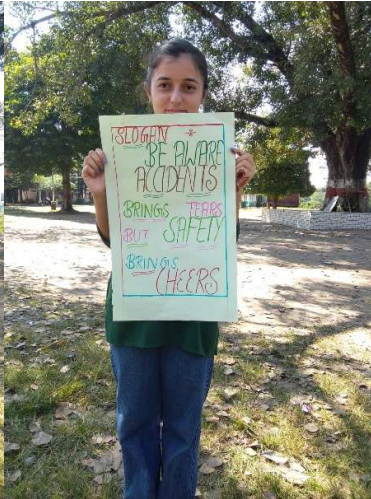 SLOGAN
BE AWARE
ACCIDENTS
BRINGS TEARS
BUT SAFETY
BRINGS
CHEERS